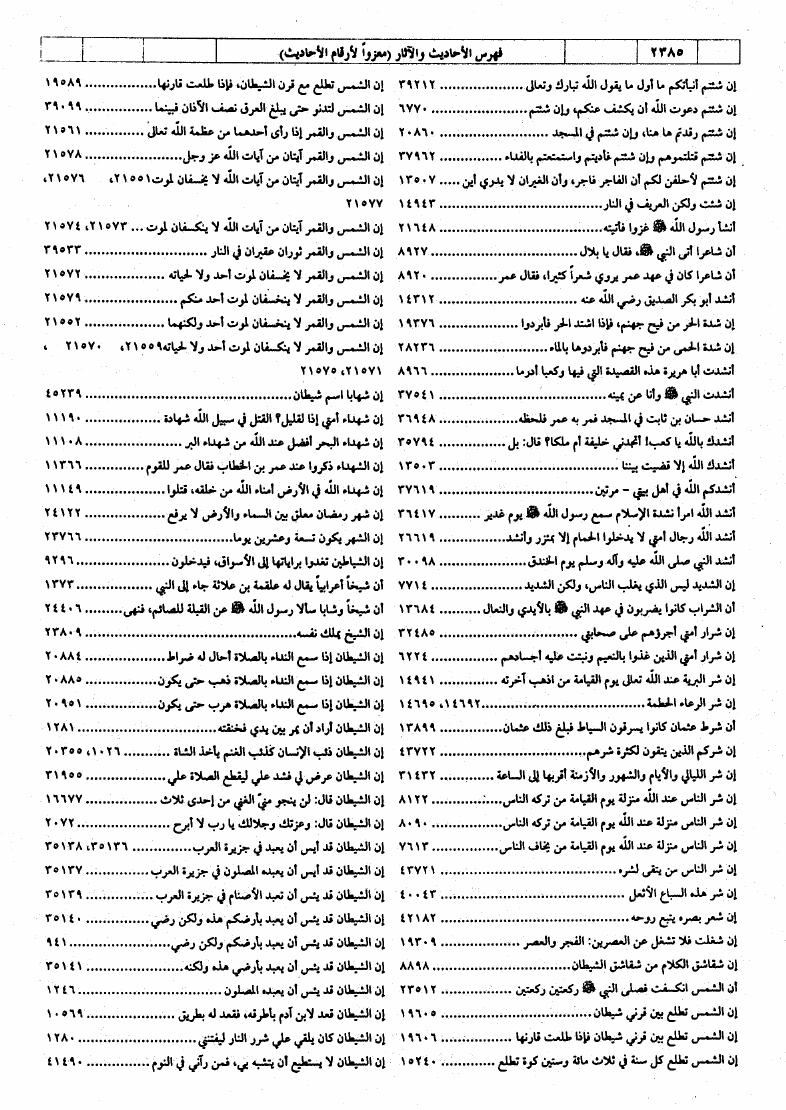 ٢٣٨٥
فهرس الأحاديث والآثار (معزواً لأرقام الأحاديث)
إن شئتم أنبأتكم ما أول ما يقول الله تبارك وتعالى .................... ٣٩٢١٢
إن شئتم دعوت الله أن يكشف عنكم، وإن شئتم .................... ٦٧٧٠
إن شئتم رقدتم ها هنا، وإن شئتم في المسجد .................... ٢٠٨٦٠
إن شئتم قتلتموهم وإن شئتم فأديتم واستمتعتم بالفداء .................... ٣٧٩٦٢
إن شئتم لأحلفن لكم أن الفاجر فاجر، وأن الغيران لا يدري أين ..... ١٣٥٠٧
إن شئت ولكن العريف في النار .................... ١٤٩٤٣
أنشأ رسول الله ﷺ غزوا فأتيته .................... ٢١٦٤٨
أن شاعرا أتى النبي ﷺ، فقال يا بلال .................... ٨٩٢٧
أن شاعرا كان في عهد عمر يروي شعراً كثيرا، فقال عمر .................... ٨٩٢٠
أنشد أبو بكر الصديق رضي الله عنه .................... ١٤٣١٢
إن شدة الحر من فيح جهنم، فإذا اشتد الحر فأبردوا .................... ١٩٣٧٦
إن شدة الحمى من فيح جهنم فأبردوها بالماء .................... ٢٨٢٣٦
أنشدت أبا هريرة هذه القصيدة التي فيها وكعبا أدوما .................... ٨٩٦٦
أنشدت النبي ﷺ وأنا عن يمينه .................... ٣٧٥٤١
أنشد حسان بن ثابت في المسجد فمر به عمر فلحظه .................... ٣٦٩٤٨
أنشدك بالله يا كعب! أتجدني خليفة أم ملكا؟ قال: بل .................... ٣٥٧٩٤
أنشدك الله إلا قضيت بيننا .................... ١٣٥٠٣
أنشدكم الله في أهل بيتي - مرتين .................... ٣٧٦١٩
أنشد الله امرأ نشدة الإسلام سمع رسول الله ﷺ يوم غدير .......... ٣٦٤١٧
أنشد الله رجال أمتي لا يدخلوا الحمام إلا بمئزر وأنشد .................... ٢٦٦١٩
أنشد النبي صلى الله عليه وآله وسلم يوم الخندق .................... ٣٠٠٩٨
إن الشديد ليس الذي يغلب الناس، ولكن الشديد .................... ٧٧١٤
أن الشراب كانوا يضربون في عهد النبي ﷺ بالأيدي والنعال .......... ١٣٦٨٤
إن شرار أمتي أجرؤهم على صحابتي .................... ٣٢٤٨٥
إن شرار أمتي الذين غذوا بالنعيم ونبتت عليه أجسادهم .................... ٦٢٢٤
إن شر البرية عند الله تعالى يوم القيامة من اذهب آخرته .................... ١٤٩٤١
إن شر الرعاء الحطمة .................... ١٤٦٩٢، ١٤٦٩٥
أن شرط عثمان كانوا يسرقون السياط فبلغ ذلك عثمان .................... ١٣٨٩٩
إن شركم الذين يتقون لكثرة شرهم .................... ٤٣٧٢٢
إن شر الليالي والأيام والشهور والأزمنة أقربها إلى الساعة .......... ٣١٤٣٢
إن شر الناس عند الله منزلة يوم القيامة من تركه الناس .................... ٨١٢٢
إن شر الناس منزلة عند الله يوم القيامة من تركه الناس .................... ٨٠٩٠
إن شر الناس منزلة عند الله يوم القيامة من يخاف الناس .................... ٧٦١٣
إن شر الناس من يتقى لشره .................... ٤٣٧٢١
إن شر هذه السباع الأثعل .................... ٤٠٠٤٣
إن شعر بصره يتبع روحه .................... ٤٢١٨٢
إن شغلت فلا تشغل عن العصرين: الفجر والعصر .................... ١٩٣٠٩
إن شقاشق الكلام من شقاشق الشيطان .................... ٨٨٩٨
أن الشمس انكسفت فصلى النبي ﷺ ركعتين ركعتين .................... ٢٣٥١٢
إن الشمس تطلع بين قرني شيطان .................... ١٩٦٠٥
إن الشمس تطلع بين قرني شيطان فإذا طلعت قارنها .................... ١٩٦٠٦
إن الشمس تطلع كل سنة في ثلاث مائة وستين كوة تطلع .......... ١٥٢٤٠
إن الشمس تطلع مع قرن الشيطان، فإذا طلعت قارنها .................... ١٩٥٨٩
إن الشمس لتدنو حتى يبلغ العرق نصف الآذان فبينما .................... ٣٩٠٩٩
إن الشمس والقمر إذا رأى أحدهما من عظمة الله تعالى .................... ٢١٥٦١
إن الشمس والقمر آيتان من آيات الله عز وجل .................... ٢١٥٧٨
إن الشمس والقمر آيتان من آيات الله لا يخسفان لموت ٢١٥٥١، ٢١٥٧٦،
٢١٥٧٧
إن الشمس والقمر آيتان من آيات الله لا ينكسفان لموت ... ٢١٥٧٣، ٢١٥٧٤
إن الشمس والقمر ثوران عقيران في النار .................... ٣٩٥٣٣
إن الشمس والقمر لا يخسفان لموت أحد ولا لحياته .................... ٢١٥٧٢
إن الشمس والقمر لا ينخسفان لموت أحد منكم .................... ٢١٥٧٩
إن الشمس والقمر لا ينخسفان لموت أحد ولكنهما .................... ٢١٥٥٢
إن الشمس والقمر لا ينكسفان لموت أحد ولا لحياته ٢١٥٥٩، ٢١٥٧٠ ،
٢١٥٧١، ٢١٥٧٥
إن شهابا اسم شيطان .................... ٤٥٢٣٩
إن شهداء أمتي إذا لقليل؟ القتل في سبيل الله شهادة .................... ١١١٩٠
إن شهداء البحر أفضل عند الله من شهداء البر .................... ١١١٠٨
إن الشهداء ذكروا عند عمر بن الخطاب فقال عمر للقوم .................... ١١٣٦٦
إن شهداء الله في الأرض أمناء الله من خلقه، قتلوا .................... ١١١٤٩
إن شهر رمضان معلق بين السماء والأرض لا يرفع .................... ٢٤١٢٢
إن الشهر يكون تسعة وعشرين يوما .................... ٢٣٧٦٦
إن الشياطين تغدوا براياتها إلى الأسواق، فيدخلون .................... ٩٢٩٦
أن شيخاً أعرابياً يقال له علقمة بن علاثة جاء إلى النبي .................... ١٣٧٣
أن شيخاً وشابا سألا رسول الله ﷺ عن القبلة للصائم، فنهى .......... ٢٤٤٠٦
إن الشيخ يملك نفسه .................... ٢٣٨٠٩
إن الشيطان إذا سمع النداء بالصلاة أحال له ضراط .................... ٢٠٨٨٤
إن الشيطان إذا سمع النداء بالصلاة ذهب حتى يكون .................... ٢٠٨٨٥
إن الشيطان إذا سمع النداء بالصلاة هرب حتى يكون .................... ٢٠٩٥١
إن الشيطان أراد أن يمر بين يدي فخنقته .................... ١٢٨١
إن الشيطان ذئب الإنسان كذئب الغنم يأخذ الشاة .......... ١٠٢٦، ٢٠٣٥٥
إن الشيطان عرض لي فشد علي ليقطع الصلاة علي .................... ٣١٩٥٥
إن الشيطان قال: لن ينجو منيّ الغني من إحدى ثلاث .................... ١٦٦٧٧
إن الشيطان قال: وعزتك وجلالك يا رب لا أبرح .................... ٢٠٧٢
إن الشيطان قد أيس أن يعبد في جزيرة العرب .................... ٣٥١٣٦، ٣٥١٣٨
إن الشيطان قد أيس أن يعبده المصلون في جزيرة العرب .................... ٣٥١٣٧
إن الشيطان قد يئس أن تعبد الأصنام في جزيرة العرب .................... ٣٥١٣٩
إن الشيطان قد يئس أن يعبد بأرضكم هذه ولكن رضي .................... ٣٥١٤٠
إن الشيطان قد يئس أن يعبد بأرضكم ولكن رضي .................... ٩٤١
إن الشيطان قد يئس أن يعبد بأرضي هذه ولكنه .................... ٣٥١٤١
إن الشيطان قد يئس أن يعبده المصلون .................... ١٢٤٦
إن الشيطان قعد لابن آدم بأطرقه، فقعد له بطريق .................... ١٠٥٦٩
إن الشيطان كان يلقي علي شرر النار ليفتنني .................... ١٢٨٠
إن الشيطان لا يستطيع أن يتشبه بي، فمن رآني في النوم .................... ٤١٤٩٠